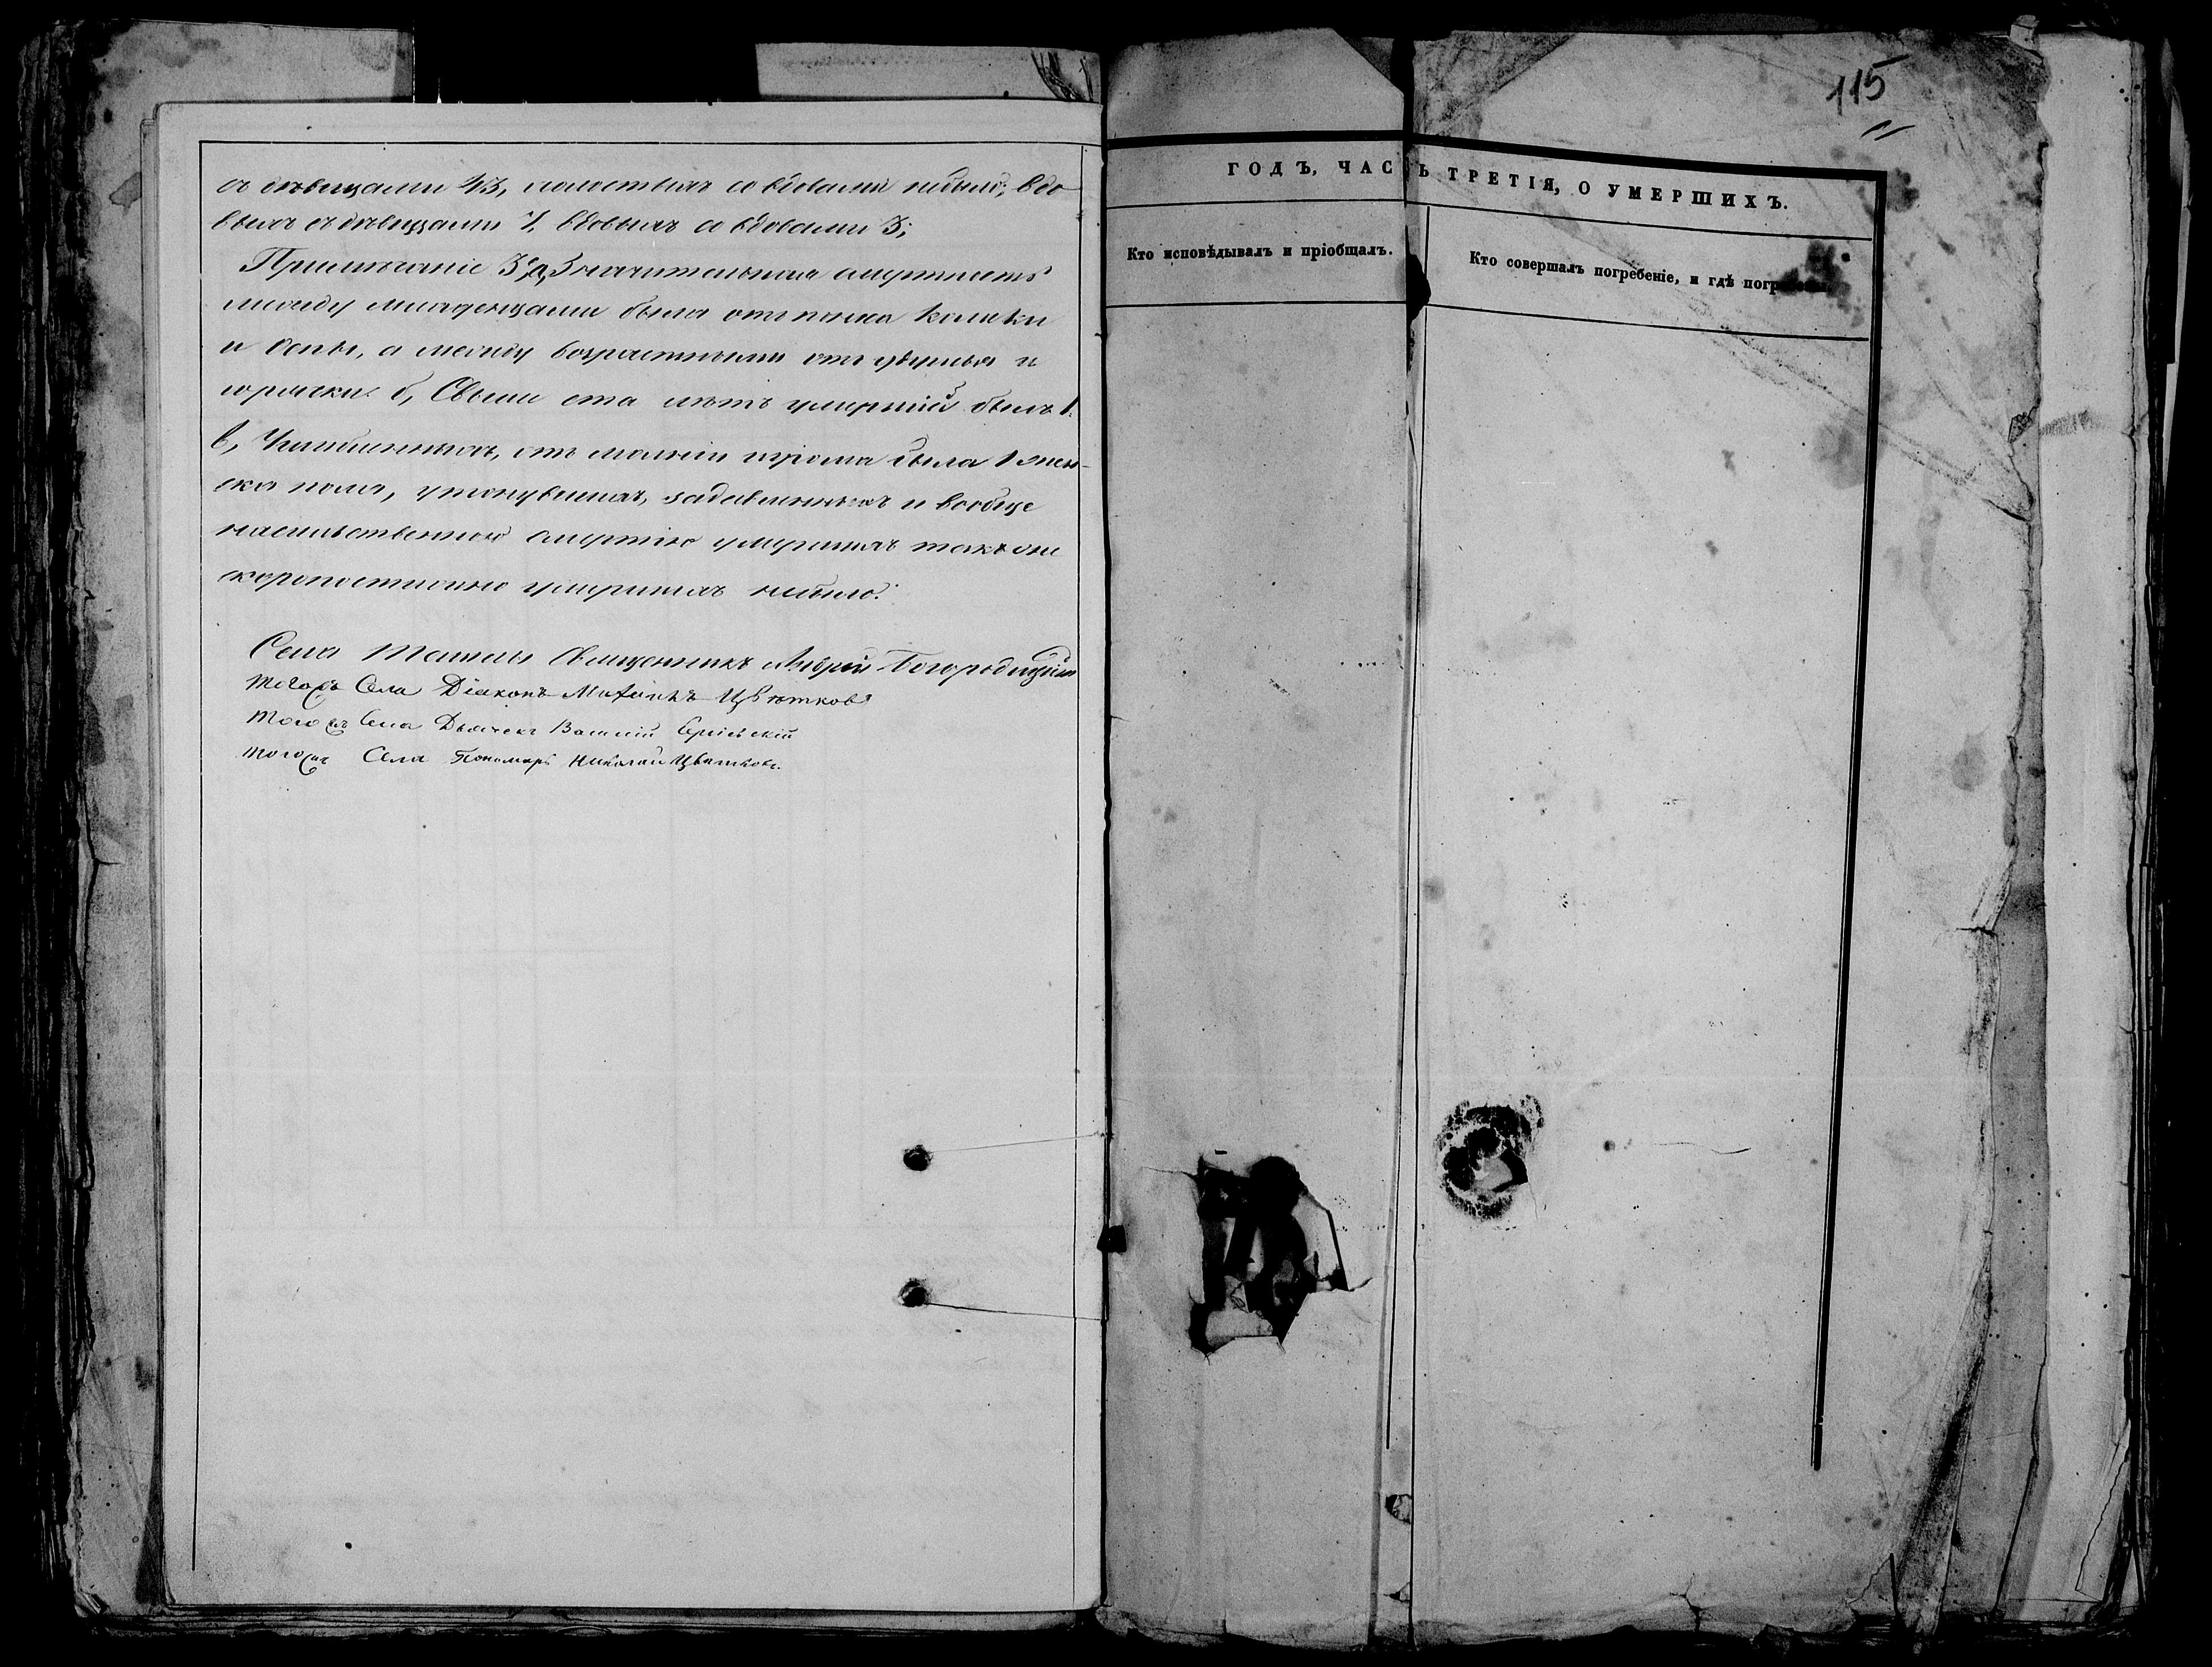 съ дѣвицами 43, холостыхъ со вдовами небыло; вдо
выхъ съ дѣвицами 7, вдовыхъ со вдовами 3;
Примѣчаніе 3е а, Значительная смертность
между младенцами была отъ поноса колики
и оспы, а между возрастными отъ удушья и
горячки. б, Свыше ста лѣтъ умершій былъ 1.
в, Убитыхъ отъ молніи грома была 1 жен-
ска пола, утонувшихъ, задавленныхъ и вообще
насильственною смертію умершихъ также
скоропостижно умершихъ небыло.
Села Священникъ Андрей Богородицкій
тогожъ Села Діаконъ Михаилъ Цвѣтковъ
Тогожъ Села Дьячекъ Василій
тогожъ Села Пономарь Николай Цвѣтковъ.
115
ГОДЪ, ЧАСТЬ ТРЕТІЯ, О УМЕРШИХЪ.
Кто исповѣдывалъ и пріобщалъ.
Кто совершалъ погребеніе, и гдѣ погр